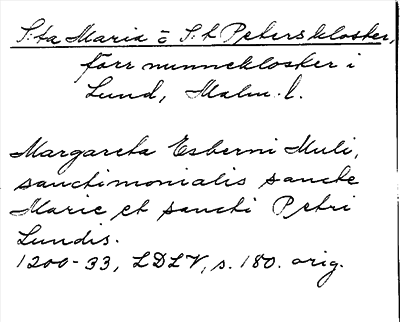 S:ta Maria o S:t Peters kloster,
förr nunnekloster i
Lund, Malm. l.
Margareta Esberni Muli,
sanctimonialis sancte
Marie et sancti Petri
Lundis.
1200-33, LDLV, s. 180. orig.